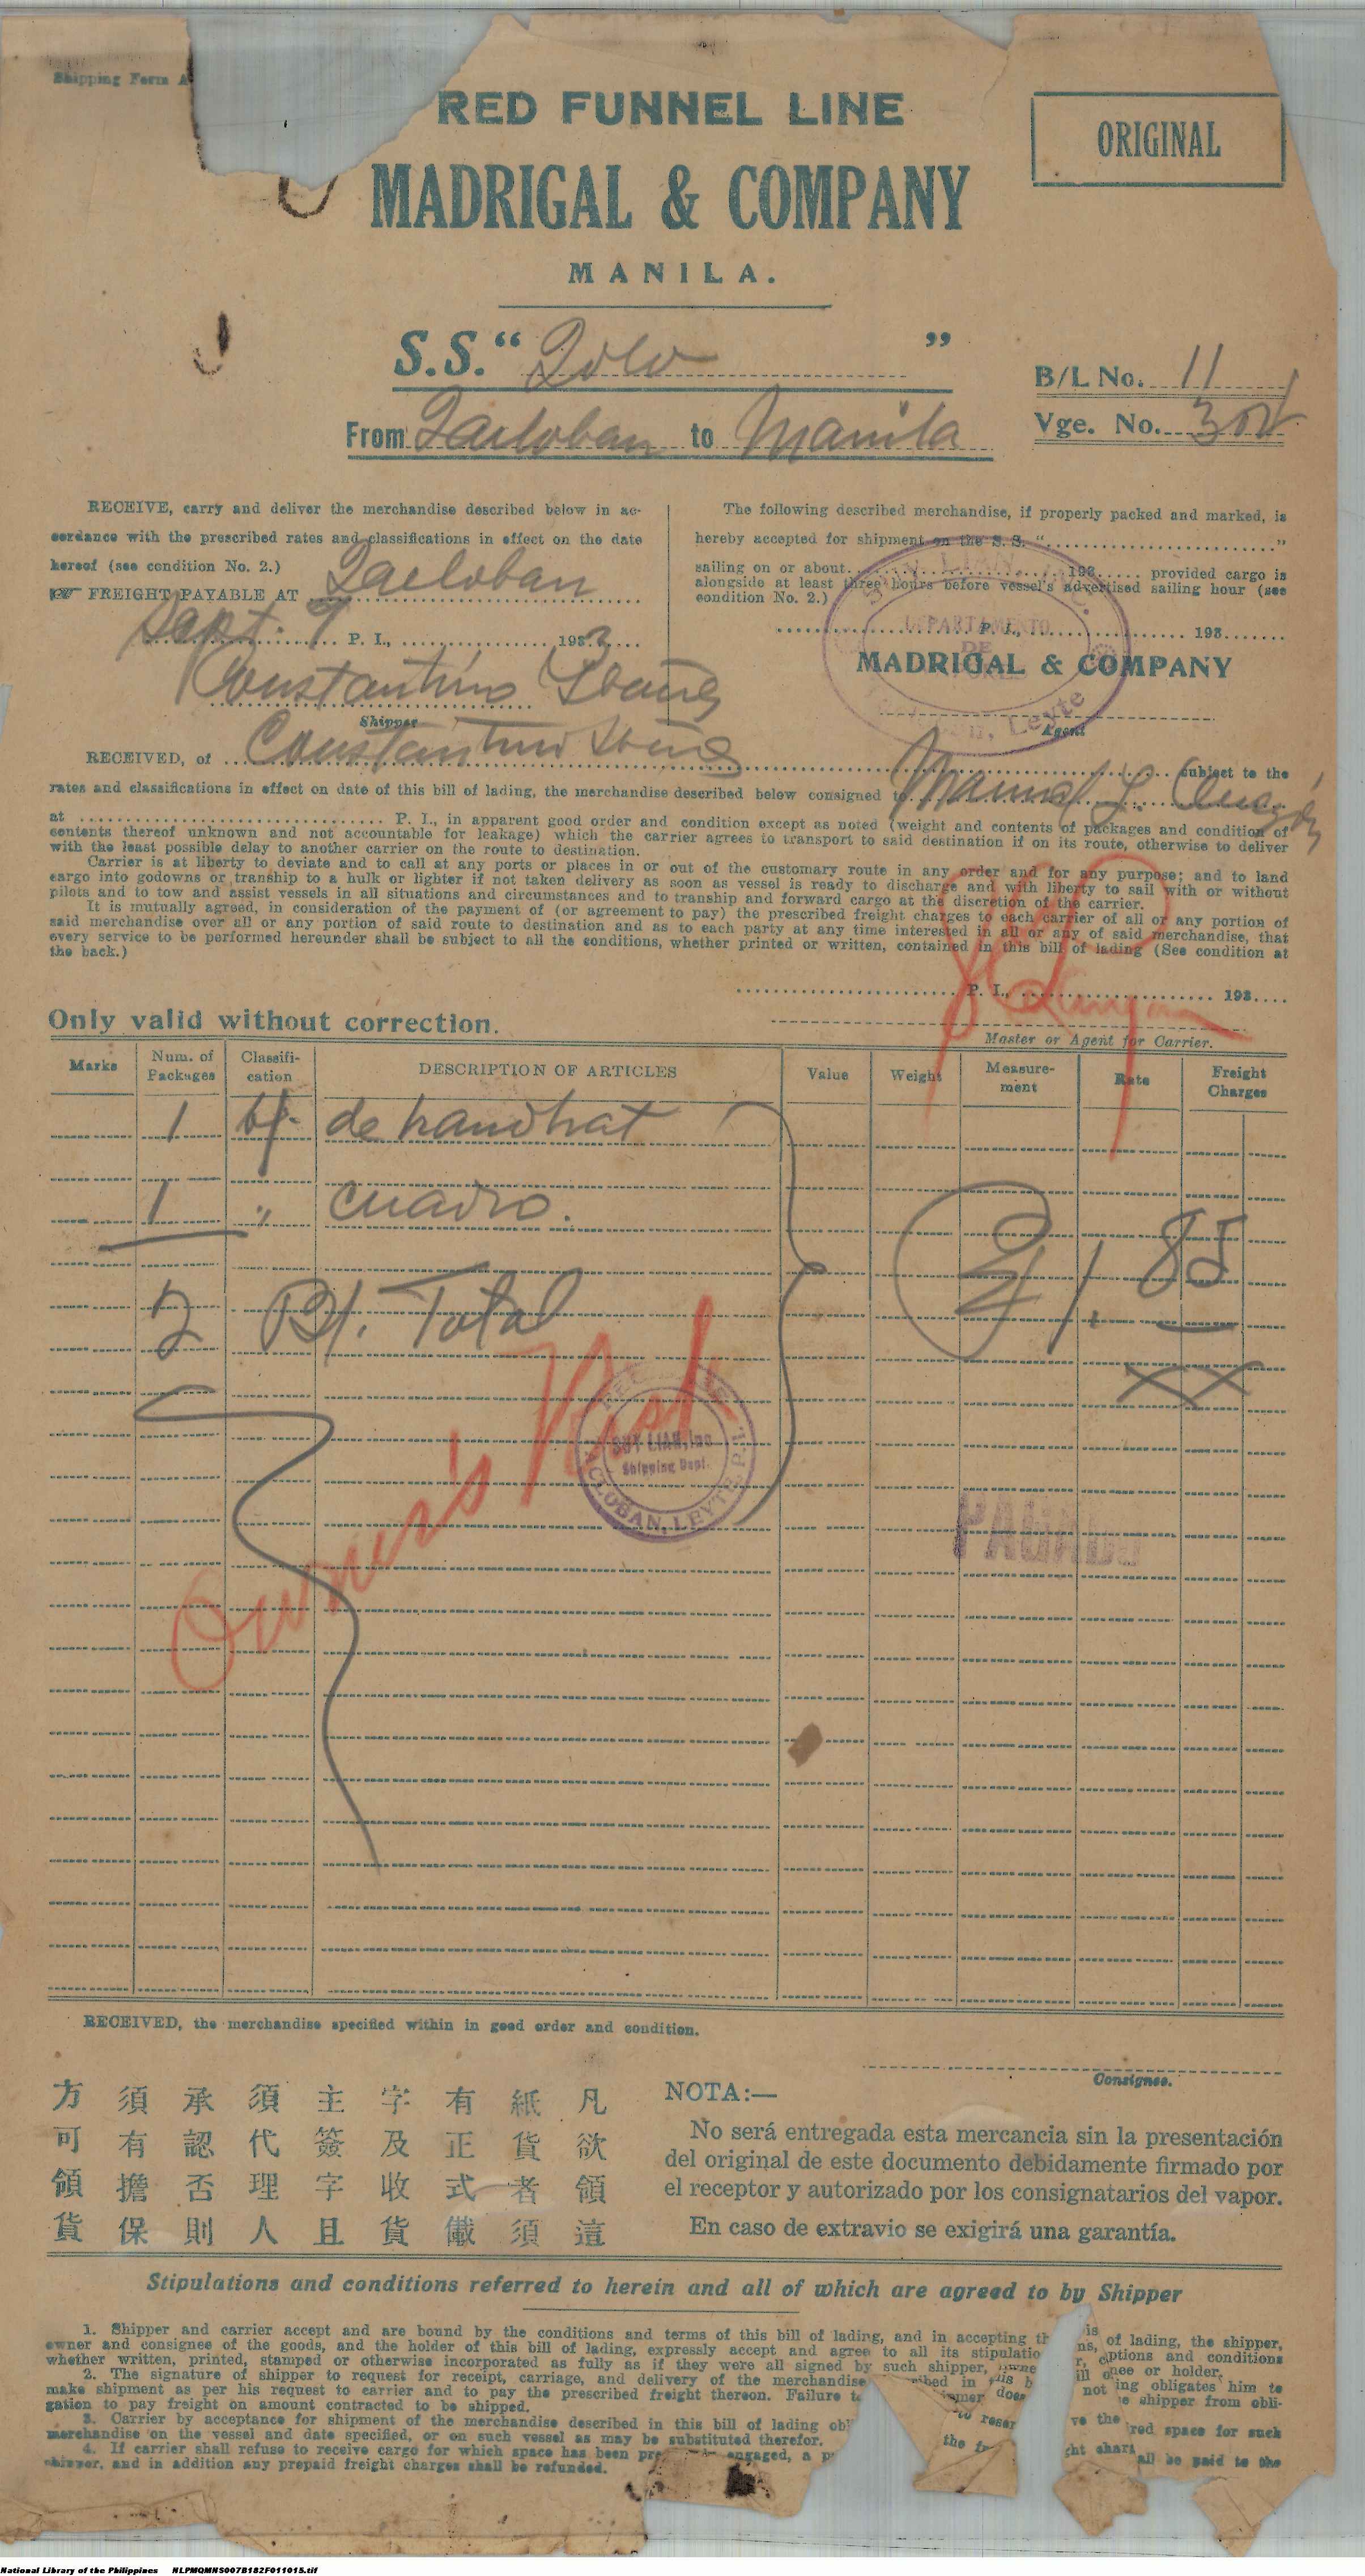 Shipping Form A
RED FUNNEL LINE
ORIGINAL
MADRIGAL & COMPANY
MANILA.
S.S. "Jolo"
B/L No. 11
From Tacloban to Manila
Vge. No.
RECEIVE, carry and deliver the merchandise described below in ac-
cordance with the prescribed rates and classifications in effect on the date
hereof (see condition No. 2.)
FREIGHT PAYABLE AT Tacloban
Sept. 9 P. I., 1933
Constantino
Shipper
The following described merchandise, if properly packed and marked, is
hereby accepted for shipment on the S. S. "........"
sailing on or about........193...... provided cargo is
alongside at least three hours before vessel's advertised sailing hour (see
condition No. 2.)
P. I., 193.......
DEPARTAMENTO
DE
MADRIGAL & COMPANY
Leyte
Agent
RECEIVED, of Constantino subject to the
rates and classifications in effect on date of this bill of lading, the merchandise described below consigned to Manuel L.
at ........ P. I., in apparent good order and condition except as noted (weight and contents of packages and condition of
contents thereof unknown and not accountable for leakage) which the carrier agrees to transport to said destination if on its route, otherwise to deliver
with the least possible delay to another carrier on the route to destination.
Carrier is at liberty to deviate and to call at any ports or places in or out of the customary route in any order and for any purpose; and to land
cargo into godowns or tranship to a hulk or lighter if not taken delivery as soon as vessel is ready to discharge and with liberty to sail with or without
pilots and to tow and assist vessels in all situations and circumstances and to tranship and forward cargo at the discretion of the carrier.
It is mutually agreed, in consideration of the payment of (or agreement to pay) the prescribed freight charges to each carrier of all or any portion of
said merchandise over all or any portion of said route to destination and as to each party at any time interested in all or any of said merchandise, that
every service to be performed hereunder shall be subject to all the conditions, whether printed or written, contained in this bill of lading (See condition at
the back.)
P. I., 193....
Only valid without correction.
Master or Agent for Carrier.
Marks Num. of Packages Classifi-cation DESCRIPTION OF ARTICLES Value Weight Measure-ment Rate Freight Charges
1 de
1 " cuadro.
1.85
2 Bt. Total
Owner's Risk
SUY LIAN, Inc
Shipping Dept.
TACLOBAN, LEYTE, P.I.
PAGADO
RECEIVED, the merchandise specified within in good order and condition.
Consignee.
凡欲領這
紙貨者須
有正式儎
字及收貨
主簽字且
須代理人
承認否則
須有擔保
方可領貨
NOTA:—
No será entregada esta mercancia sin la presentación
del original de este documento debidamente firmado por
el receptor y autorizado por los consignatarios del vapor.
En caso de extravio se exigirá una garantía.
Stipulations and conditions referred to herein and all of which are agreed to by Shipper
1. Shipper and carrier accept and are bound by the conditions and terms of this bill of lading, and in accepting th is
owner and consignee of the goods, and the holder of this bill of lading, expressly accept and agree to all its stipulatio ns, of lading, the shipper,
whether written, printed, stamped or otherwise incorporated as fully as if they were all signed by such shipper, owne r, options and conditions
ill onee or holder.
2. The signature of shipper to request for receipt, carriage, and delivery of the merchandise ribed in this b not ing obligates him to
make shipment as per his request to carrier and to pay the prescribed freight thereon. Failure to omer does e shipper from obli-
gation to pay freight on amount contracted to be shipped.
3. Carrier by acceptance for shipment of the merchandise described in this bill of lading obl to reser ve the red space for such
merchandise on the vessel and date specified, or on such vessel as may be substituted therefor.
4. If carrier shall refuse to receive cargo for which space has been pre engaged, a p the fr ght charg all be paid to the
shipper, and in addition any prepaid freight charges shall be refunded.
National Library of the Philippines NLPMQMNS007B182F011015.tif